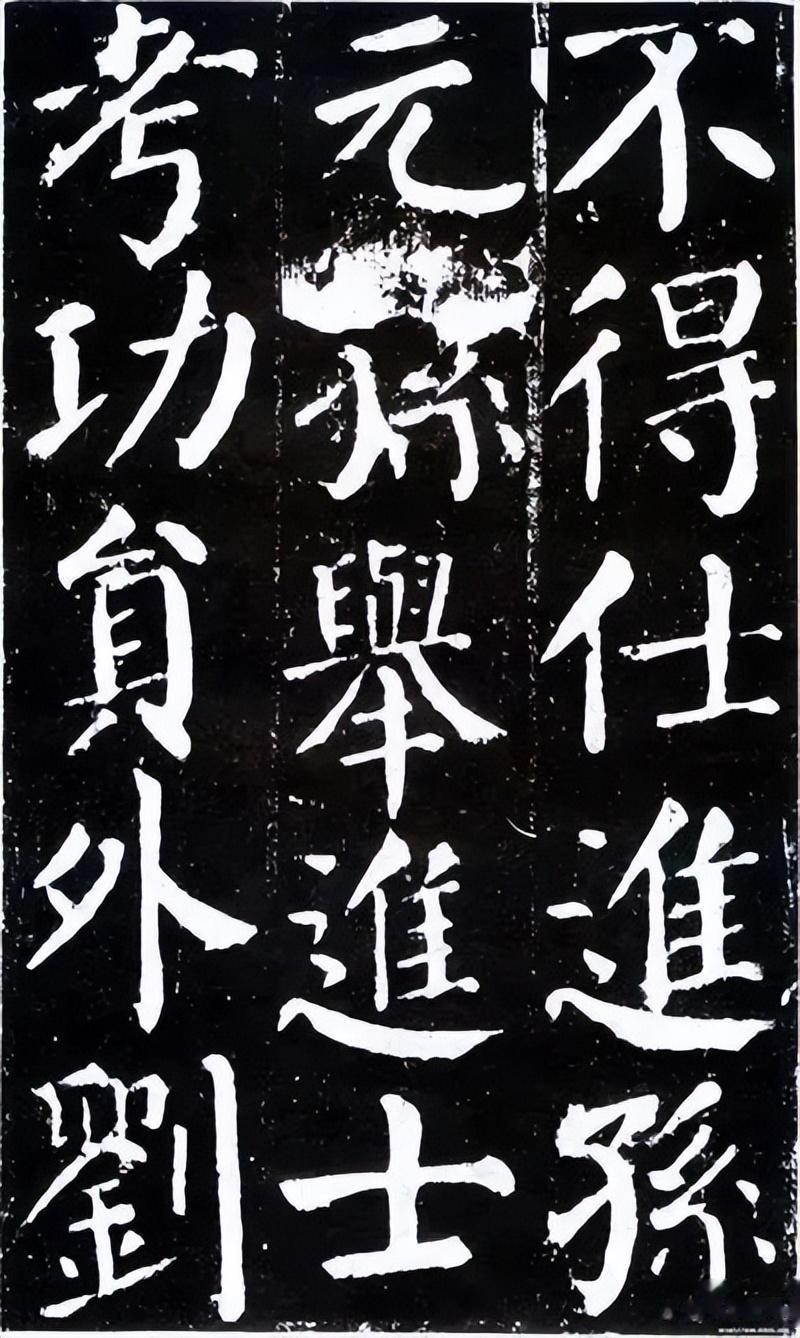 不得仕進孫
元孫舉進士
考功員外劉